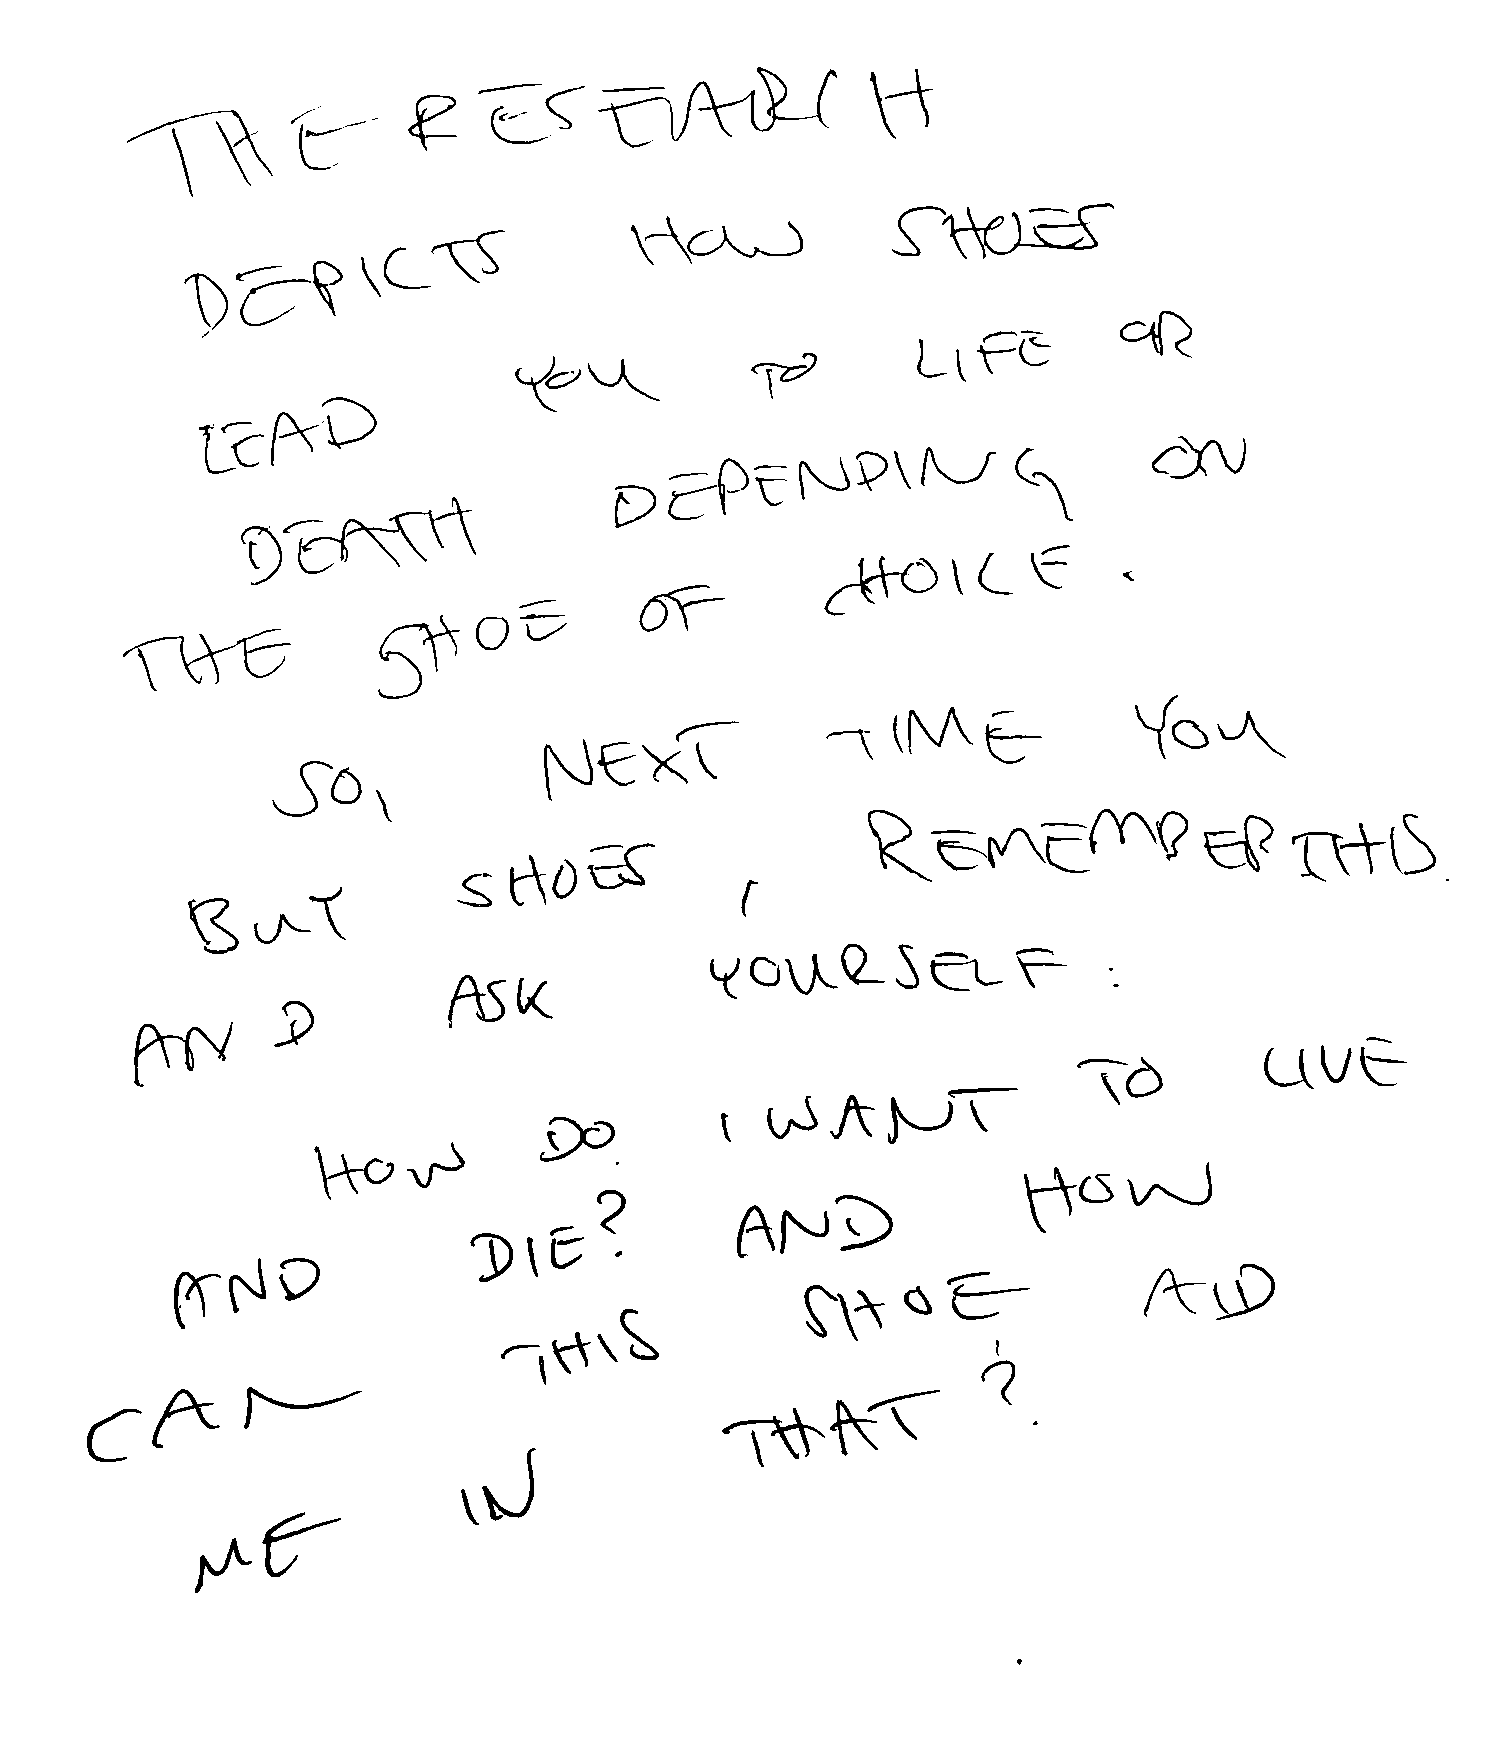 THE RESEARCH
DEPICTS HOW SHOES
LEAD YOU TO LIFE OR
DEATH DEPENDING ON
THE SHOE OF CHOICE.
SO, NEXT TIME YOU
BUT SHOES, REMEMBER THIS.
AND ASK YOURSELF:
HOW DO I WANT TO LIVE
AND DIE? AND HOW
CAN THIS SHOE AID
ME IN THAT?